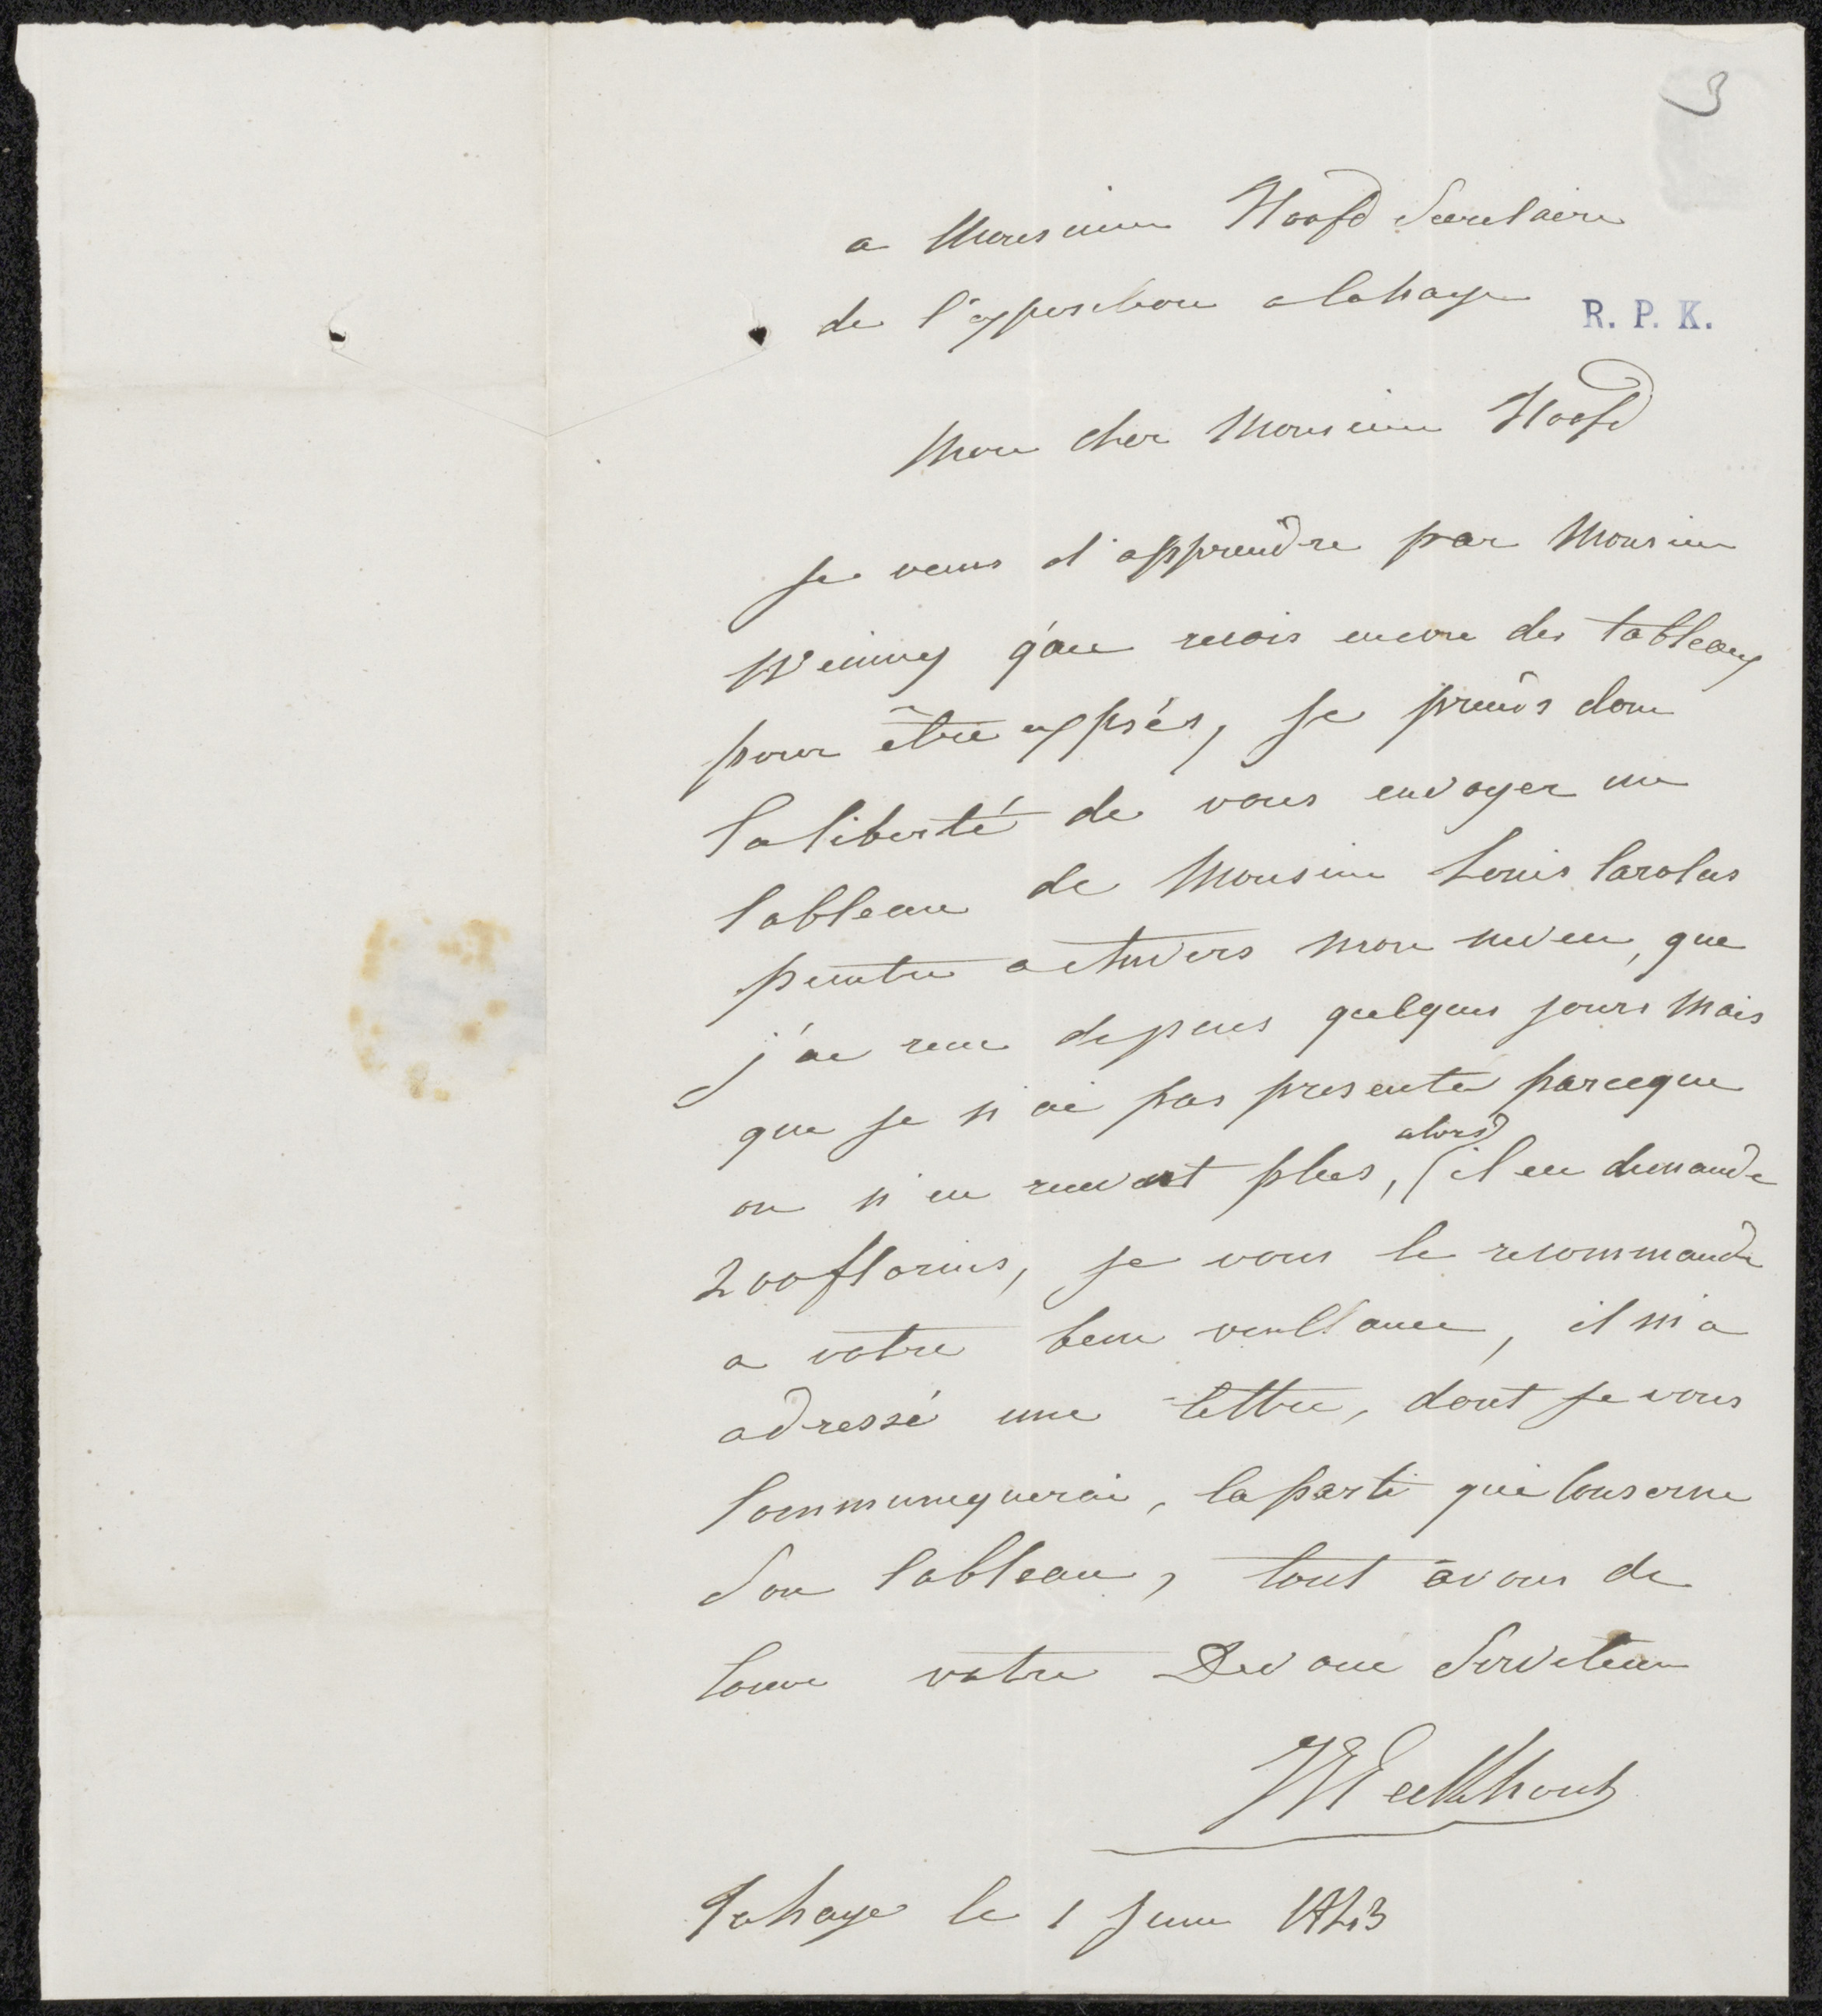 3
a Monsieur Hoofd Secretaire
de l'exposition a lahaye
R. P. K.
Mon cher Monsieur Hoofd
Je viens d'apprendre par Monsieur
q'on recois encore des tableaux
pour être exposés, je prends donc
la liberté de vous envoyer un
tableau de Monsieur Louis Carolus
peintre a Anvers mon neveu, que
j'ai recu depuis quelques jours mais
que je n'ai pas presenté parceque
alors
on n'en recevait plus, il en demande
200 florins, je vous le recommande
a votre bien veullance, il m'a
adressé une lettre, dont je vous
communiquerai, la parti qui conserne
son tableau, tout à vous de
coeur votre Devoué Serviteur
JJ Eeckhout
Lahaye le 1 Juin 1843